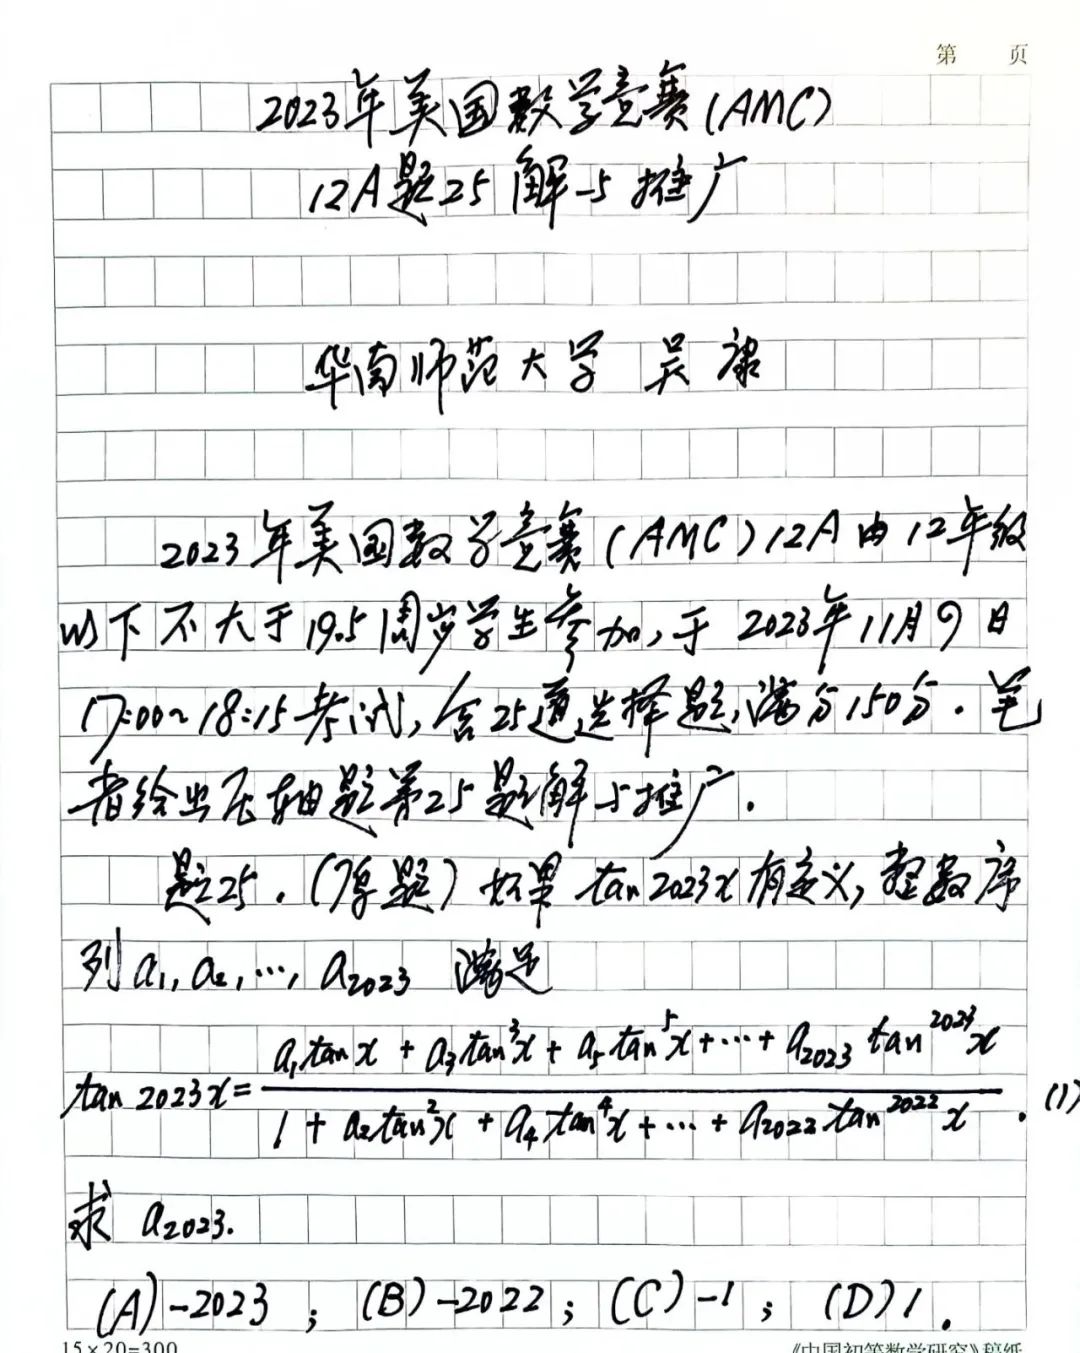 第 页
2023年美国数学竞赛(AMC)
12A题25解与推广
华南师范大学 吴康
2023年美国数学竞赛(AMC)12A由12年级
以下不大于19.5周岁学生参加,于2023年11月9日
17:00~18:15考试,含25道选择题,满分150分.笔
者给出压轴题第25题解与推广.
题25.(原题)如果tan2023x有定义,整数序
列a₁,a₂,…,a₂₀₂₃ 满足
tan2023x=(a₁tanx+a₃tan³x+a₅tan⁵x+…+a₂₀₂₃tan²⁰²³x)/(1+a₂tan²x+a₄tan⁴x+…+a₂₀₂₂tan²⁰²²x). (1)
求a₂₀₂₃.
(A)-2023; (B)-2022; (C)-1; (D)1.
15×20=300 《中国初等数学研究》稿纸